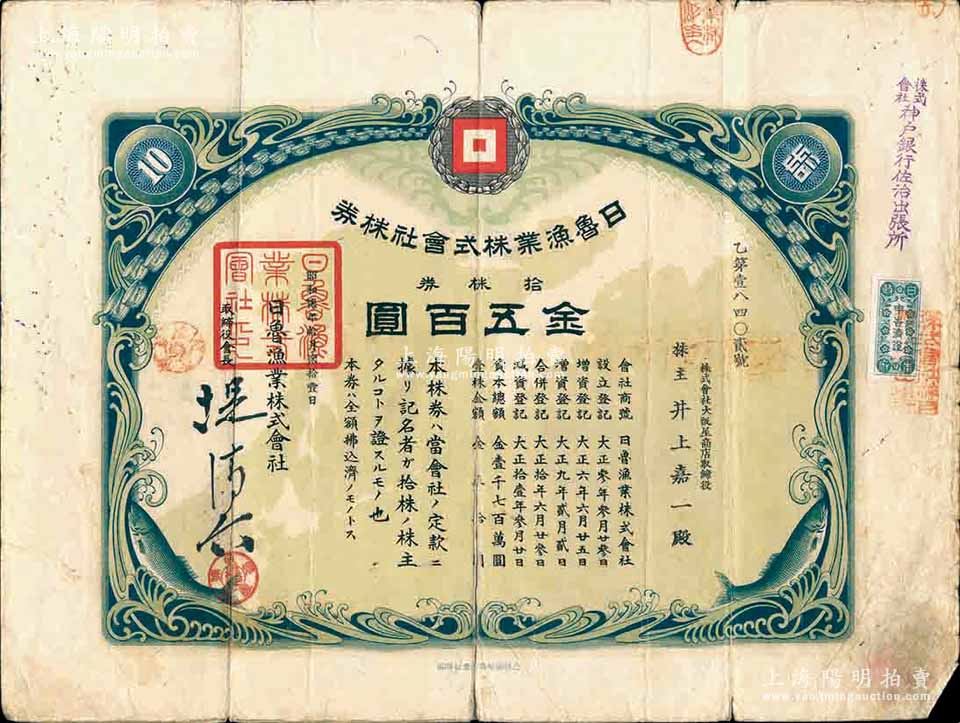 日魯漁業株式會社株券
拾株券
金五百圓
10
拾
乙第壹八四〇貳號
株式會社大阪屋商店取締役
株主 井上嘉一殿
會社商號 日魯漁業株式會社
設立登記 大正參年參月廿參日
增資登記 大正六年六月廿五日
增資登記 大正九年貳月貳日
合併登記 大正拾年六月廿參日
減資登記 大正拾壹年參月廿日
資本總額 金壹千七百萬圓
本株券ハ當會社ノ定款ニ
據リ記名者ガ拾株ノ株主
タルコトヲ證スルモノ也
本券ハ全額拂込濟ノモノトス
日魯漁業株式會社
取締役會長
日魯漁業株式會社
株式會社神戸銀行佐治出張所
上海陽明拍賣
www.yangmingauction.com